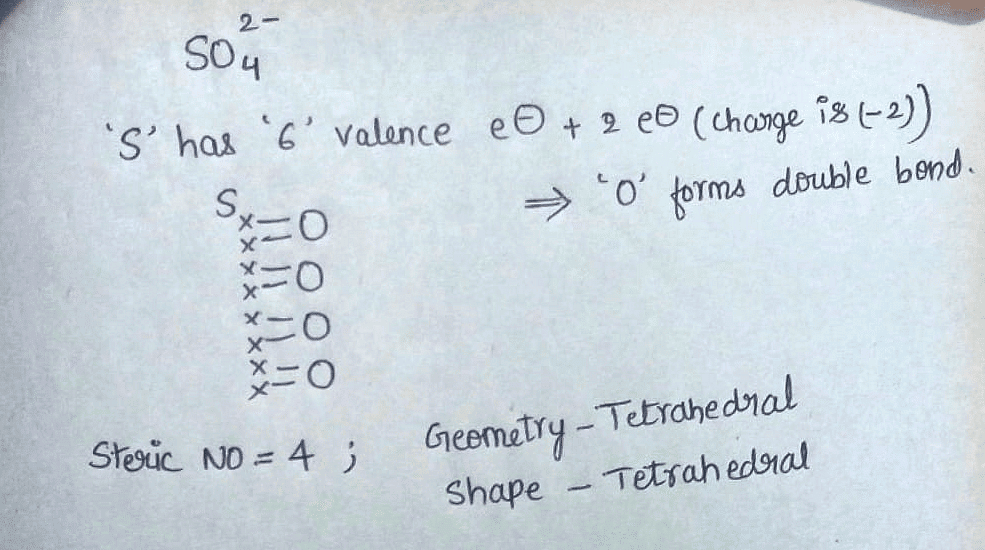 SO₄²⁻
'S' has '6' valence e⊖ + 2 e⊖ (charge is (-2))
⇒ 'O' forms double bond.
S
x x = O
x x = O
x x = O
x x = O
Steric NO = 4 ;
Geometry - Tetrahedral
Shape - Tetrahedral